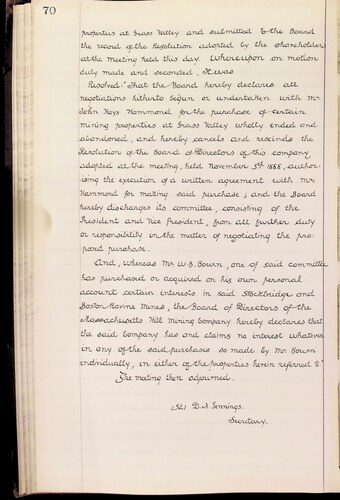 70
properties at Grass Valley and submitted to the Board
the record of the Resolution adopted by the shareholders
at the Meeting held this day. Whereupon on motion
duly made and seconded, it was
Resolved "That the Board hereby declares all
negotiations hitherto begun or undertaken with Mr
John Hays Hammond for the purchase of certain
mining properties at Grass Valley wholly ended and
abandoned, and hereby cancels and rescinds the
Resolution of the Board of Directors of this company
adopted at the meeting, held November 5th 1888, author-
ising the execution of a written agreement with Mr
Hammond for making said purchase; and the Board
hereby discharges its committee, consisting of the
President and Vice President, from all further duty
or responsibility in the matter of negotiating the pro-
posed purchase.
And, whereas Mr W.B. Bourn, one of said committee
has purchased or acquired on his own personal
account certain interests in said Stockbridge and
Boston Ravine Mines, the Board of Directors of the
Massachusetts Hill Mining Company hereby declares that
the said Company has and claims no interest whatever
in any of the said purchases so made by Mr Bourn
individually, in either of the properties herein referred to."
The meeting then adjourned.
(Sd) D. A. Jennings.
Secretary.